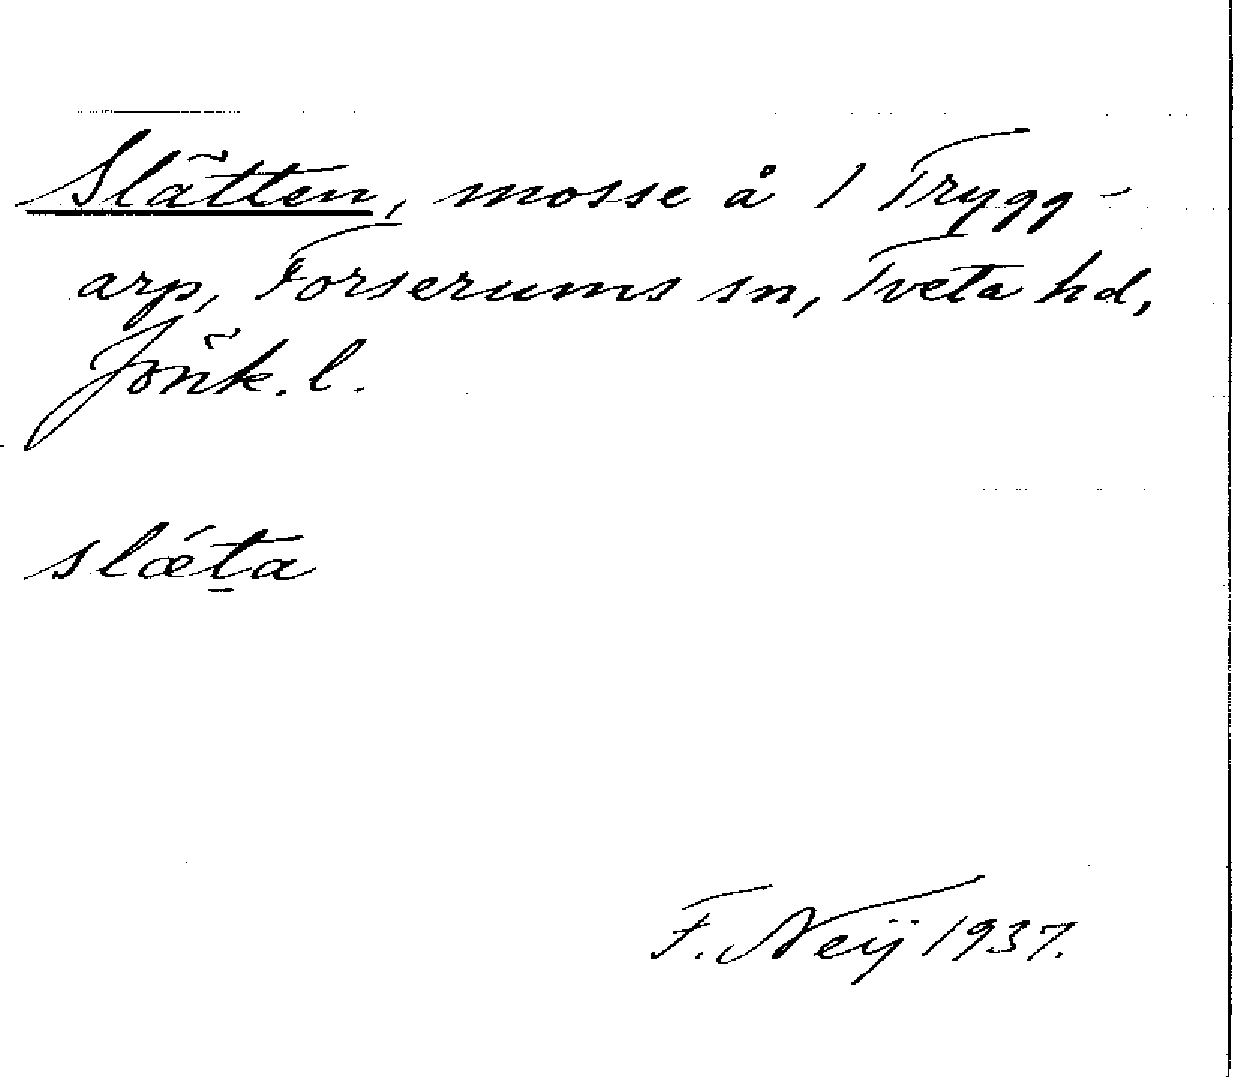 Slätten, mosse å 1 Trygg-
arp, Forserums sn, Tveta hd,
Jönk. l.
slǽt̠a
F. Neij 1937.